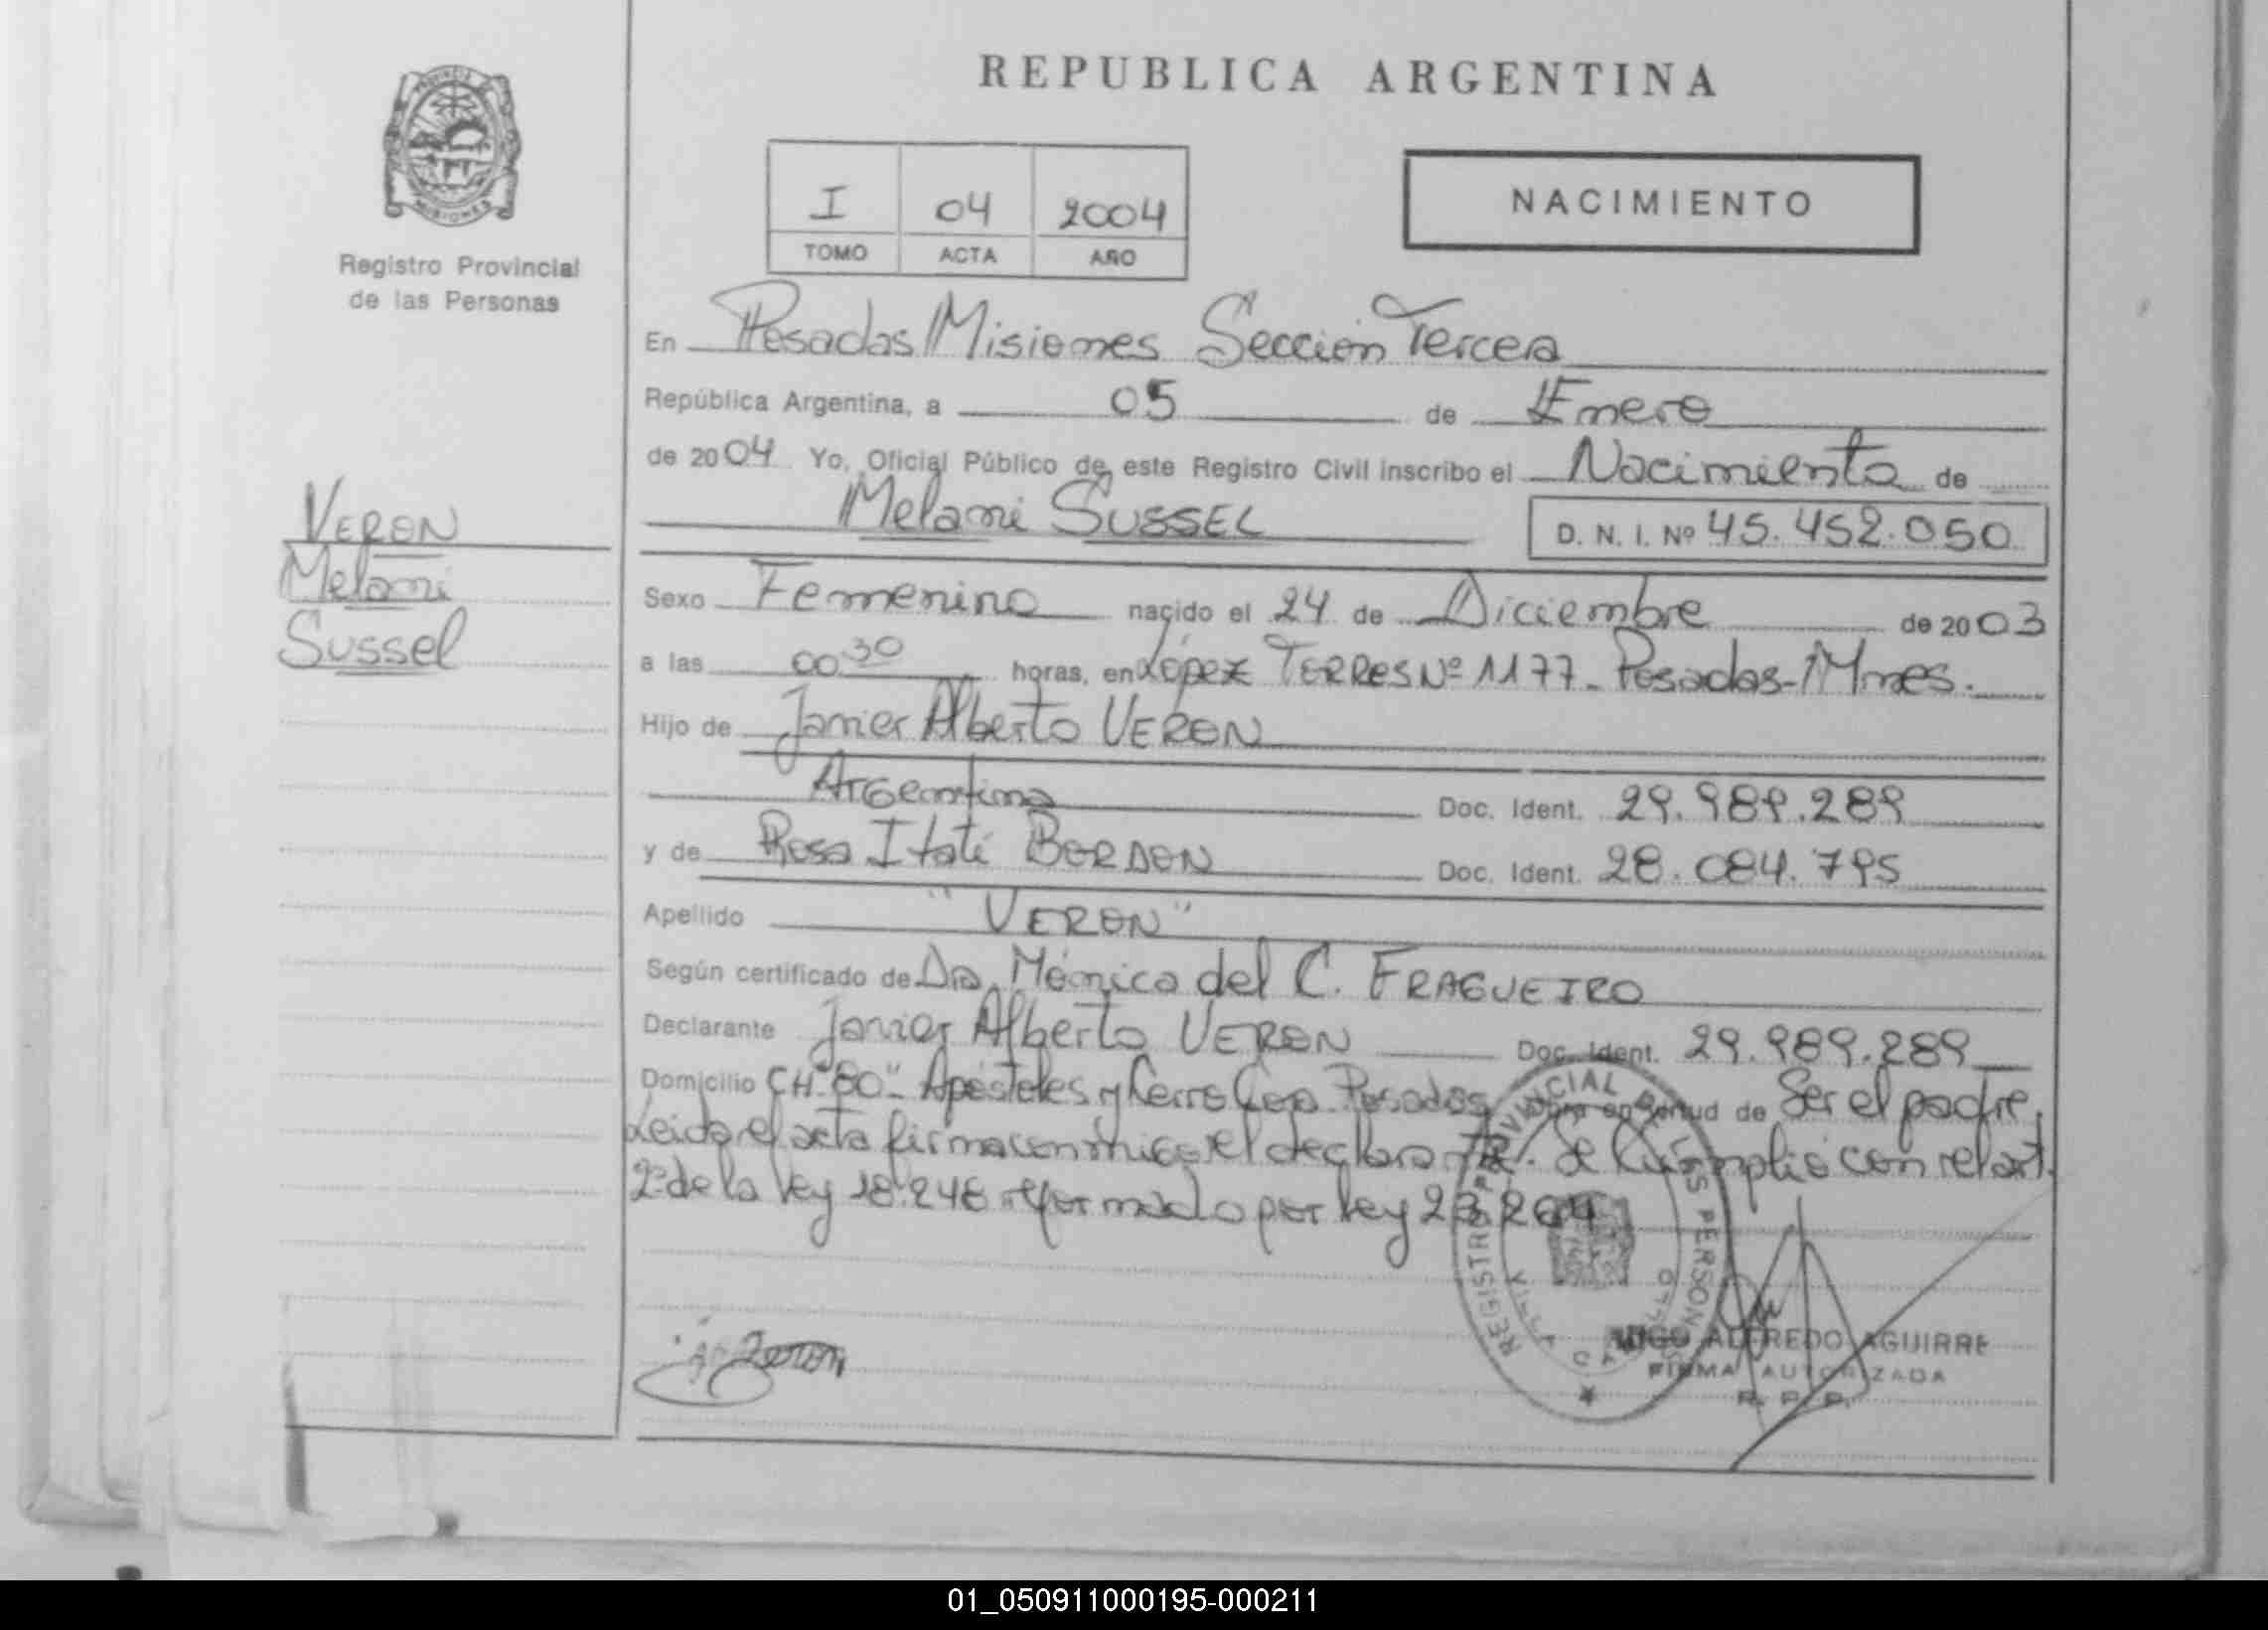 REPUBLICA ARGENTINA
PROVINCIA
MISIONES
Registro Provincial
de las Personas
I 04 2004
TOMO ACTA AÑO
NACIMIENTO
En Posadas Misiones Sección Tercera
República Argentina, a 05 de Enero
de 2004 Yo, Oficial Público de este Registro Civil inscribo el Nacimiento de
Melani SUSSEL D. N. I. Nº 45.452.050
VERON
Melani
Sussel
Sexo Femenino nacido el 24 de Diciembre de 2003
a las 00:30 horas, en López TORRES Nº 1177 - Posadas - Mnes.
Hijo de Javier Alberto VERON
Argentina Doc. Ident. 29.989.289
y de Rosa Itatí BORDON Doc. Ident. 28.084.795
Apellido "VERON"
Según certificado de Dra. Mónica del C. FRAGUEIRO
Declarante Javier Alberto VERON Doc. Ident. 29.989.289
Domicilio CH "80" - Apóstoles y Cerro Corá Posadas Obra en virtud de Ser el padre.
Leida el acta firma conmigo el declarante. Se Cumplió con el art.
2º de la ley 18.248 reformado por ley 23.264
Veron
REGISTRO PROVINCIAL DE LAS PERSONAS
VILLA CABELLO
HUGO ALFREDO AGUIRRE
FIRMA AUTORIZADA
R. P. P.
01_050911000195-000211